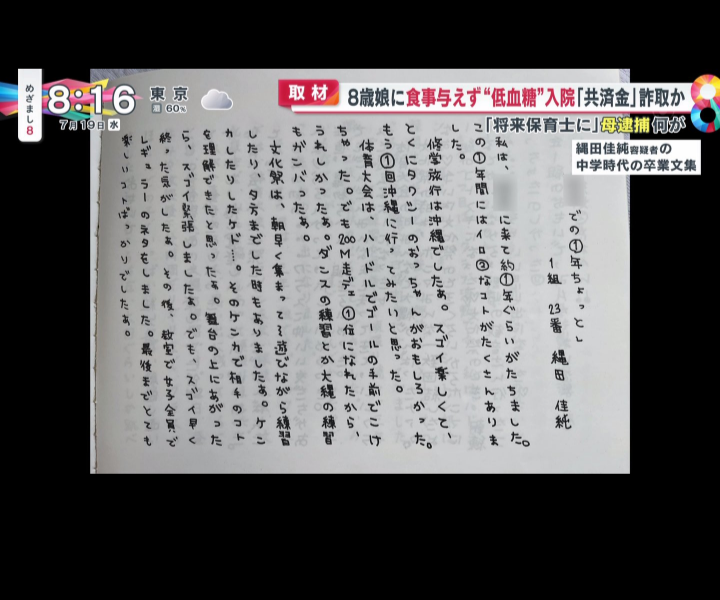 めざまし8
8:16
7月19日 水
東京
60%
取材
8歳娘に食事与えず“低血糖”入院「共済金」詐取か
「将来保育士に」母逮捕 何が
縄田佳純容疑者の
中学時代の卒業文集
での①年ちょっと」
1組 23番 縄田 佳純
私は、 に来て約①年ぐらいがたちました。
この①年間にはイロ②なコトがたくさんありま
した。
修学旅行は沖縄でしたぁ。スゴイ楽しくて、
とくにタクシーのおっちゃんがおもしろかった。
もう①回沖縄に行ってみたいと思った。
体育大会は、ハードルでゴールの手前でこけ
ちゃった。でも200M走デ①位になれたから、
うれしかったぁ。ダンスの練習とか大縄の練習
もガンバったぁ。
文化祭は、朝早く集まってる遊びながら練習
したり、夕方までした時もありましたぁ。ケン
カしたりしたケド…。そのケンカで相手のコト
を理解できたと思ったぁ。舞台の上にあがった
ら、スゴイ緊張しましたぁ。でも、スゴイ早く
終った気がしたぁ。その後、教室で女子全員で
レギュラーのネタをしました。最後までとても
楽しいコトばっかりでしたぁ。